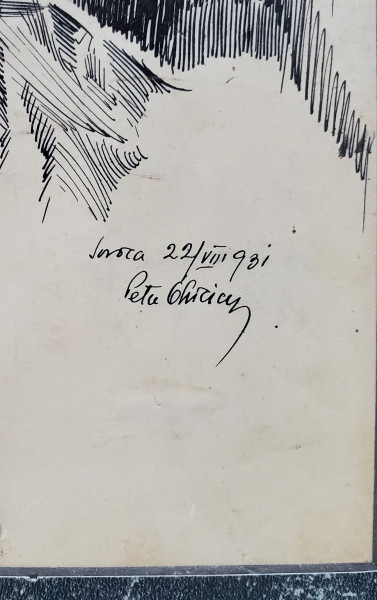 Soroca 22/VIII 931
Petu Chiriac